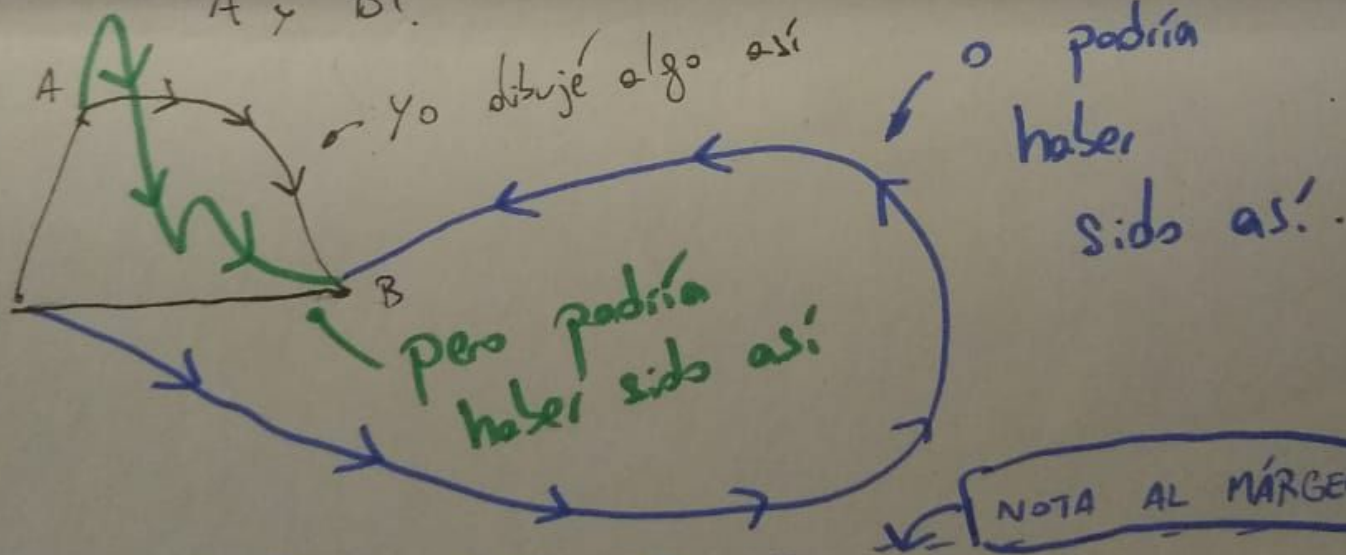 A y B?
A
Yo dibujé algo así
o podría
haber
sido así.
B
pero podría
haber sido así
NOTA AL MÁRGE